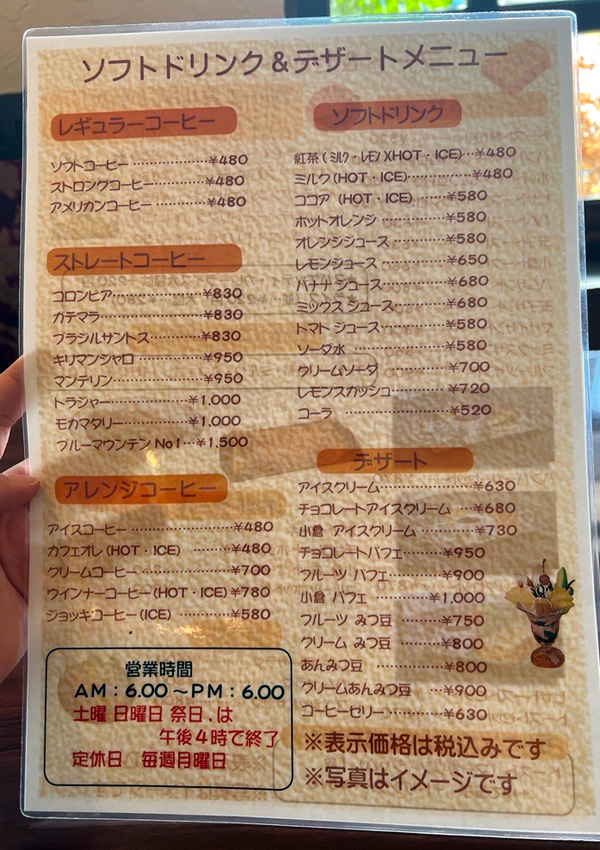 ソフトドリンク&デザートメニュー
レギュラーコーヒー
ソフトコーヒー…………¥480
ストロングコーヒー………¥480
アメリカンコーヒー………¥480
ストレートコーヒー
コロンビア…………………¥830
ガテマラ……………………¥830
ブラジルサントス…………¥830
キリマンジャロ……………¥950
マンデリン…………………¥950
トラジャー………………¥1,000
モカマタリー……………¥1,000
ブルーマウンテンNo1…¥1,500
アレンジコーヒー
アイスコーヒー……………¥480
カフェオレ(HOT・ICE) ………¥480
クリームコーヒー…………¥700
ウインナーコーヒー(HOT・ICE)¥780
ジョッキコーヒー(ICE) ………¥580
営業時間
AM:6.00~PM:6.00
土曜 日曜日 祭日、は
午後4時で終了
定休日 毎週月曜日
ソフトドリンク
紅茶(ミルク・レモン)(HOT・ICE)…¥480
ミルク(HOT・ICE)…………¥480
ココア (HOT・ICE)………¥580
ホットオレンジ……………¥580
オレンジジュース…………¥580
レモンジュース……………¥650
バナナ ジュース…………¥680
ミックス ジュース………¥680
トマト ジュース…………¥580
ソーダ水 …………………¥580
クリームソーダ …………¥700
レモンスカッシュ…………¥720
コーラ ……………………¥520
デザート
アイスクリーム……………¥630
チョコレートアイスクリーム …¥680
小倉 アイスクリーム ………¥730
チョコレートパフェ…………¥950
フルーツ パフェ……………¥900
小倉 パフェ ……………¥1,000
フルーツ みつ豆…………¥750
クリーム みつ豆 …………¥800
あんみつ豆 ………………¥800
クリームあんみつ豆 …¥900
コーヒーゼリー……………¥630
※表示価格は税込みです
※写真はイメージです